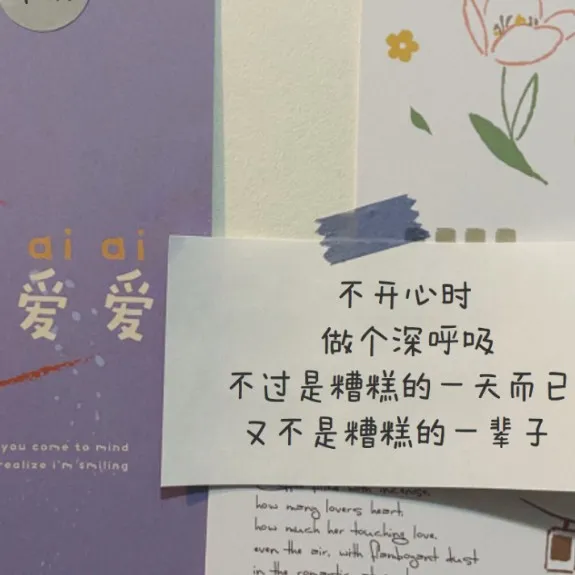 ai ai
爱 爱
you come to mind
realize i'm smiling
不开心时
做个深呼吸
不过是糟糕的一天而已
又不是糟糕的一辈子
how many lovers heart.
how much her touching love.
even the air, with flamboyant dust
in the romantic